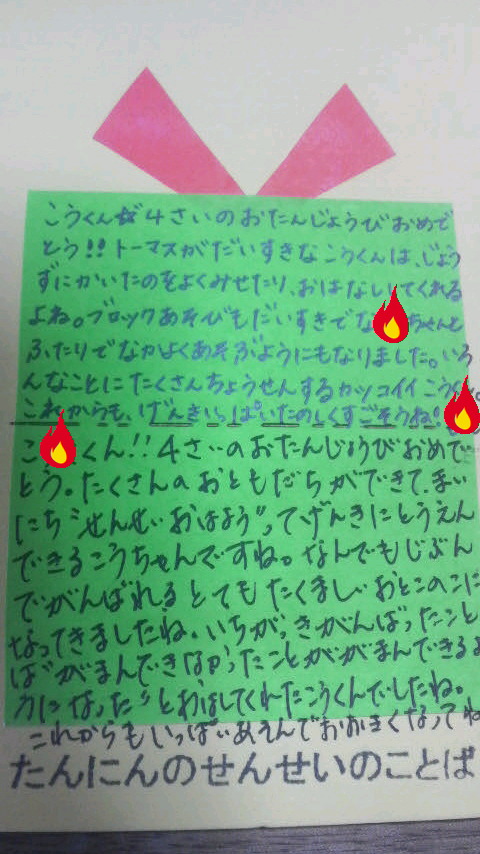 こうくん 4さいのおたんじょうびおめで
とう!!トーマスがだいすきなこうくんは、じょう
ずにかいたのをよくみせたり、おはなししてくれる
よね。ブロックあそびもだいすきでな ちゃんと
ふたりでなかよくあそぶようにもなりました。いろ
んなことにたくさんちょうせんするカッコイイこう
これからも、げんきいっぱいたのしくすごそうね!
こ くん!!4さいのおたんじょうびおめで
とう。たくさんのおともだちができて、まい
にち“せんせいおはよう”ってげんきにとうえん
できるこうちゃんですね。なんでもじぶん
でがんばれるとてもたくましいおとこのこに
なってきましたね。いちがっきがんばったこと
は“がまんできなかったことががまんできるよ
うになった”とおはなしてくれたこうくんでしたね。
これからもいっぱいあそんでおおきくなってね
たんにんのせんせいのことば